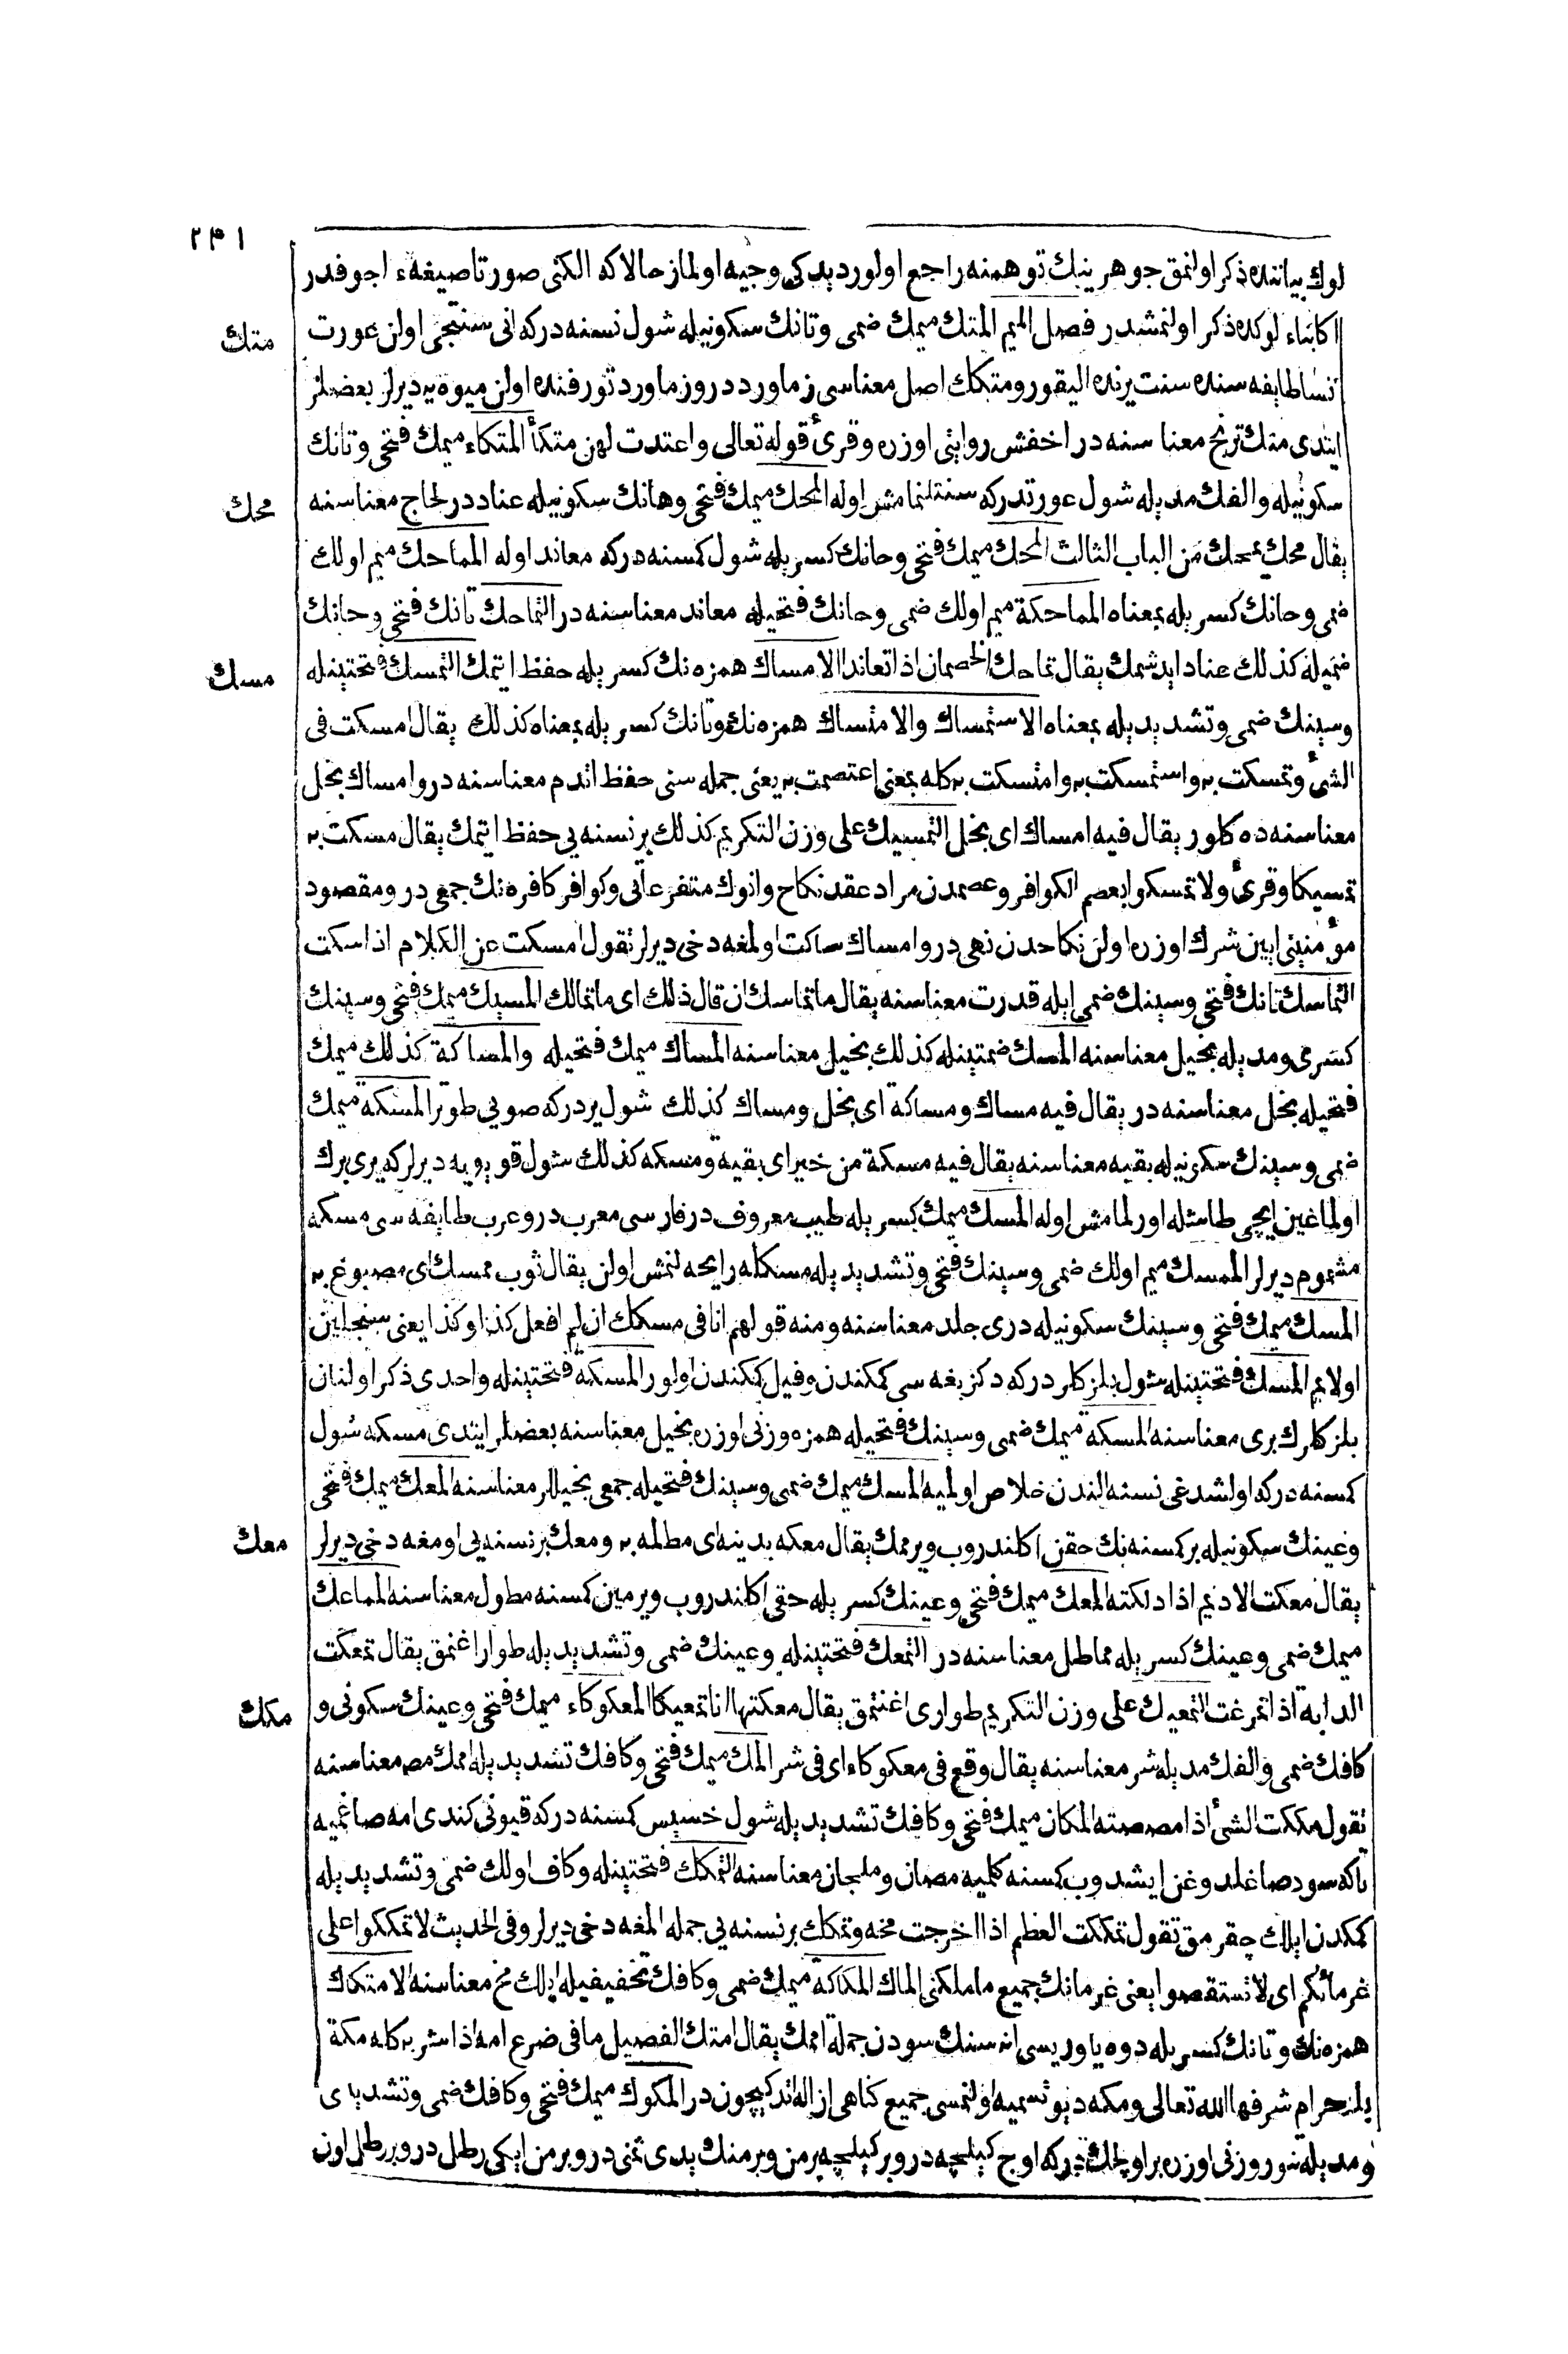 ٢٣١
لوك بياننده ذكر اولنمق جوهرينك توهمنه راجع اولور ديدكى وجيه اولماز حالا كه الكنى صورتا صيغهء اجوفدر
اكابناء لوكده ذكر اولنمشدر فصل الميم المتك ميمك ضمى وتانك سكونيله شول نسنه دركه انى سنتجى اولن عورت
نسا طايفه سنده سنت يرنده اليقور ومتكك اصل معناسى زماورد در وزماورد تورفنده اولن ميوه يه ديرلر بعضلر
ايتدى متك ترنج معنا سنه در اخفش روايتى اوزره وقرئ قوله تعالى واعتدت لهن متكأ المتكاء ميمك فتحى وتانك
سكونيله والفك مديله شول عورتدركه سنتلنمامش اوله المحك ميمك فتحى وحانك سكونيله عناد در لحاج معناسنه
يقال محك يمحك من الباب الثالث المحك ميمك فتحى وحانك كسريله شول كمسنه دركه معاند اوله المماحك ميم اولك
ضمى وحانك كسريله بمعناه المماحكة ميم اولك ضمى وحانك فتحيله معاند معناسنه در التماحك تانك فتحى وحانك
ضميله كذلك عناد ايدشمك يقال تماحك الخصمان اذا تعاندا الامساك همزه نك كسريله حفظ ايتمك التمسك فتحتينله
وسينك ضمى وتشديديله بمعناه الاستمساك والامتساك همزه نك وتانك كسريله بمعناه كذلك يقال امسكت فى
الشئ وتمسكت به واستمسكت به وامتسكت به كله بمعنى اعتصمت به يعنى جمله سنى حفظ اتدم معناسنه در وامساك بخل
معناسنه ده كلور يقال فيه امساك اى بخل التمسيك على وزن التكريم كذلك بر نسنه يى حفظ ايتمك يقال مسكت به
تمسيكا وقرئ ولا تمسكوا بعصم الكوافر وعصمدن مراد عقد نكاح وانوك متفرعاتى وكوافر كافره نك جمعى در ومقصود
مؤمنينى ايين شرك اوزره اولن نكاحدن نهى در وامساك ساكت اولمغه دخى ديرلر تقول امسكت عن الكلام اذا سكت
التماسك تانك فتحى وسينك ضمى ايله قدرت معناسنه يقال ما تماسك ان قال ذلك اى ما تمالك المسيك ميمك فتحى وسينك
كسرى ومديله بخيل معناسنه المسك ضمتينله كذلك بخيل معناسنه المساك ميمك فتحيله والمساكة كذلك ميمك
فتحيله بخل معناسنه در يقال فيه مساك ومساكة اى بخل ومساك كذلك شول يردركه صويى طوتر المسكة ميمك
ضمى وسينك سكونيله بقيه معناسنه يقال فيه مسكة من خير اى بقية ومسكه كذلك شول قويويه ديرلر كه يرى برك
اولماغين ايچى طاشله اورلمامش اوله المسك ميمك كسريله طيب معروف در فارسى معرب در وعرب طايفه سى مسكه
مشموم ديرلر الممسك ميم اولك ضمى وسينك فتحى وتشديديله مسكله رايحه لنمش اولن يقال ثوب ممسك اى مصبوغ به
المسك ميمك فتحى وسينك سكونيله درى جلد معناسنه ومنه قولهم انا فى مسكك ان لم افعل كذا وكذا يعنى سنجلين
اولايم المسك فتحتينله شول بلزكلر دركه دكز بغه سى كمكندن وفيل كمكندن اولور المسكة فتحتينله واحدى ذكر اولنان
بلزكلرك برى معناسنه المسكه ميمك ضمى وسينك فتحيله همزه وزنى اوزره بخيل معناسنه بعضلر ايتدى مسكه شول
كمسنه دركه اولشدغى نسنه الندن خلاص اولميه المسك ميمك ضمى وسينك فتحيله جمعى بخيللر معناسنه المعك ميمك فتحى
وعينك سكونيله بر كمسنه نك حقن اكلندروب ويرممك يقال معكه بدينه اى مطله به ومعك بر نسنه يى اومغه دخى ديرلر
يقال معكت الاديم اذا دلكته المعك ميمك فتحى وعينك كسريله حقى اكلندروب ويرمين كمسنه مطول معناسنه المماعك
ميمك ضمى وعينك كسريله مماطل معناسنه در التمعك فتحتينله وعينك ضمى وتشديديله طوار اغنمق يقال تمعكت
الدابة اذا تمرغت التمعيك على وزن التكريم طوارى اغنتمق يقال معكتها انا تمعيكا المعكوكاء ميمك فتحى وعينك سكونى و
كافك ضمى والفك مديله شر معناسنه يقال وقع فى معكوكاء اى فى شر المك ميمك فتحى وكافك تشديديله اممك مص معناسنه
تقول مككت الشئ اذا مصصته المكان ميمك فتحى وكافك تشديديله شول خسيس كمسنه دركه قيونى كندى امه صاغميه
تاكه سود صاغلدوغن ايشدوب كمسنه كلميه مصان وملجان معناسنه التمكك فتحتينله وكاف اولك ضمى وتشديديله
كمكدن ايلك چقرمق تقول تمككت العظم اذا اخرجت مخه وتمكك بر نسنه يى جمله المغه دخى ديرلر وفى الحديث لا تمككوا على
غرمائكم اى لا تستقصوا يعنى غرمانك جميع ماملكنى الماك المكاكة ميمك ضمى وكافك تخفيفيله ايلك مخ معناسنه الامتكاك
همزه نك وتانك كسريله دوه ياوريسى انه سنك سودن جمله اممك يقال امتك الفصيل ما فى ضرع امه اذا شربه كله مكة
بلد حرام شرفها الله تعالى ومكه ديو تسميه اولنمسى جميع كناهى ازاله اتدكيچون در المكوك ميمك فتحى وكافك ضمى وتشديدى
ومديله تنور وزنى اوزره بر اولچك در كه اوج كيلجه در وبر كيلجه بر من وبر منك يدى ثمنى در وبر من ايكى رطل در وبر رطل اون
متك
محك
مسك
معك
مكك